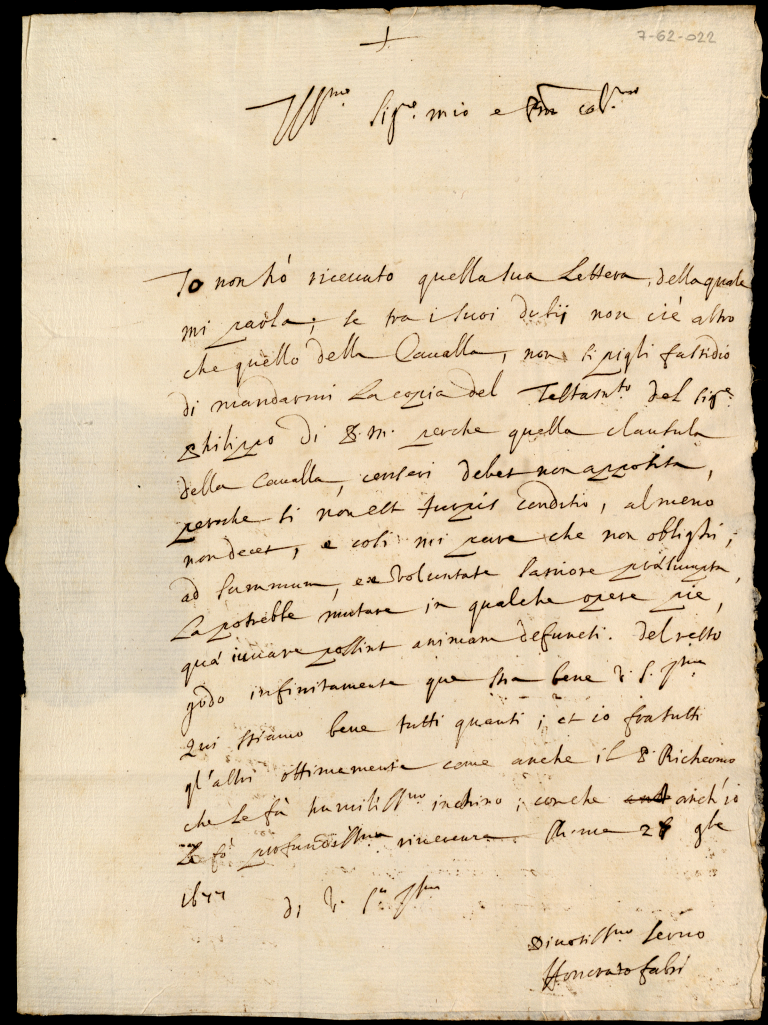 7-62-022
+
Illmo. Sigre. mio e Pron colmo.
Io non hò riceuuto quella sua Lettera, della quale
mi parla; se tra i suoi dubij non c'è altro
che quello della Caualla, non si pigli fastidio
di mandarmi la copia del Testamto. del Sigre.
Philippo di S. M. perche quella clausula
della Caualla, censeri debet non apposita,
peroche si non est turpis conditio, almeno
non decet, e cosi mi pare che non oblighi;
ad summum, ex voluntate saniore præsumpta,
la potrebbe mutare in qualche opere pie,
quæ iuuare possint animam defuncti. Del resto
godo infinitamente que stia bene V. S. Illma
Qui stiamo bene tutti quanti; et io fra tutti
gl'altri ottimamente come anche il P. Richeomo
che le fà humilissmo inchino; con che anch'io
le fò profundissima riuerenza Roma 28 9bre
1677
di V. Sria Illma
Diuotissmo Seruo
Honorato Fabri